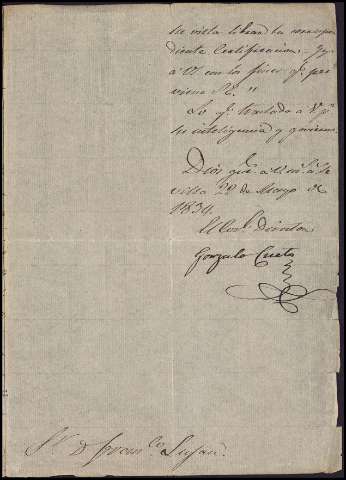 su vista libran la corresp
diente Certificacion, y
á U. con los fines q.e pre
viene &.a"
Lo q.e traslado á V. p.a
su inteligencia y gobierno.
Dios gue. á U. m.s a.s Se
villa 29 de Mayo de
1834.
El Cor.l Director
Gonzalo Cueto
S.r D. Fran.co Lujan.